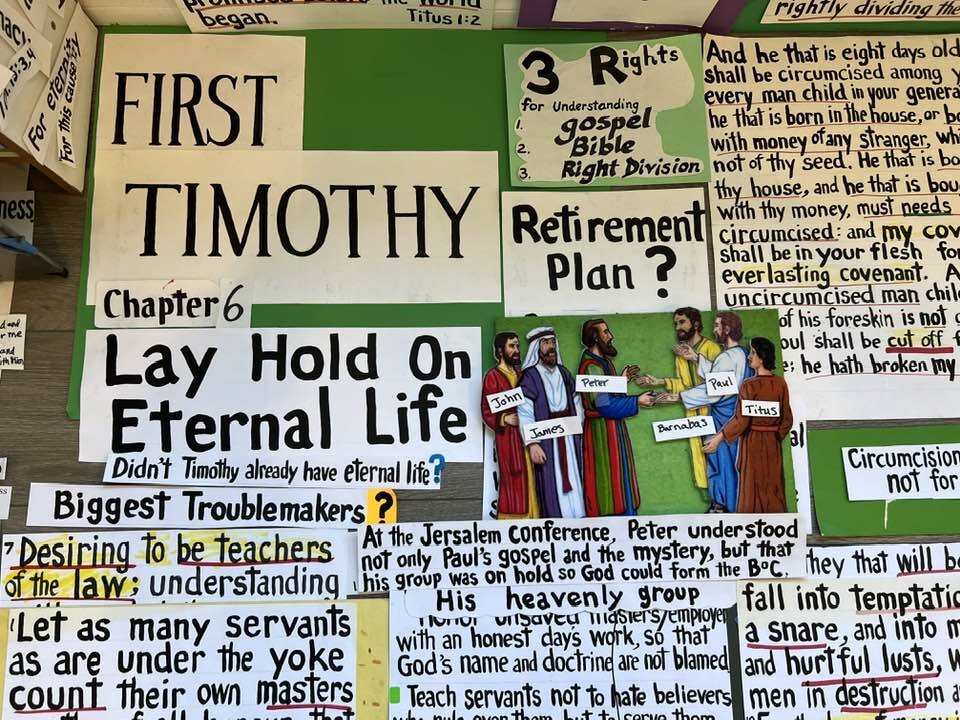 began.
Titus 1:2
rightly dividing the
For eternity
For this cause
ness
FIRST
TIMOTHY
Chapter 6
Lay Hold On
Eternal Life
Didn't Timothy already have eternal life?
Biggest Troublemakers?
7 Desiring to be teachers
of the law; understanding
"Let as many servants
as are under the yoke
count their own masters
3 Rights
for Understanding
1. gospel
2. Bible
3. Right Division
Retirement
Plan?
John
James
Peter
Barnabas
Paul
Titus
At the Jersalem Conference, Peter understood
not only Paul's gospel and the mystery, but that
his group was on hold so God could form the BoC,
His heavenly group
honor unsaved masters/employer
with an honest day's work, so that
God's name and doctrine are not blamed
Teach servants not to hate believers
who rule over them, but to serve them
And he that is eight days old
shall be circumcised among
every man child in your genera
he that is born in the house, or bo
with money of any stranger, wh
not of thy seed. He that is bo
thy house, and he that is bou
with thy money, must needs
circumcised: and my cov
shall be in your flesh fo
everlasting covenant. A
uncircumcised man chil
of his foreskin is not c
oul shall be cut off f
e; he hath broken my
Circumcision
not for
they that will be
fall into temptatio
a snare, and into m
and hurtful lusts, w
men in destruction a